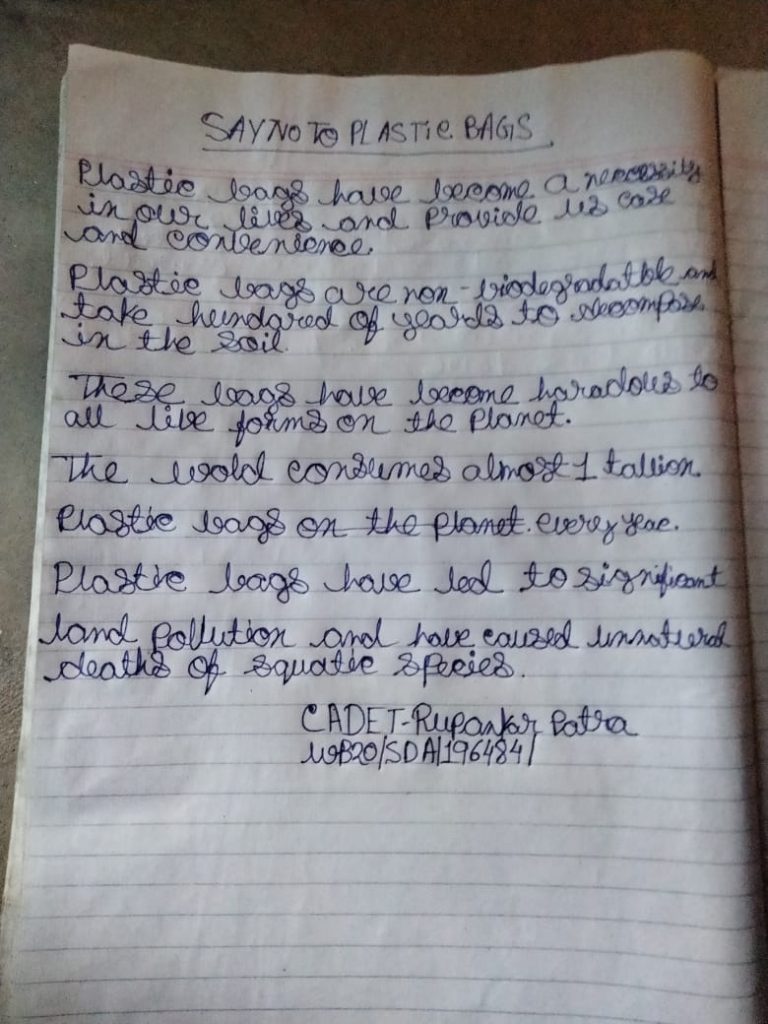 SAY NO TO PLASTIC BAGS
Plastic bags have become a neccessity
in our lives and provide us ease
and convenience.
Plastic bags are non-biodegradatble and
take hundared of yeards to decompose
in the soil.
These bags have become haradous to
all live forms on the planet.
The wold consumes almost 1 tallion.
Plastic bags on the planet. every year.
Plastic bags have led to significant
land pollution and have caused unnatural
deaths of squatic species.
CADET-Rupankar Patra
WB20/SDA/196484/